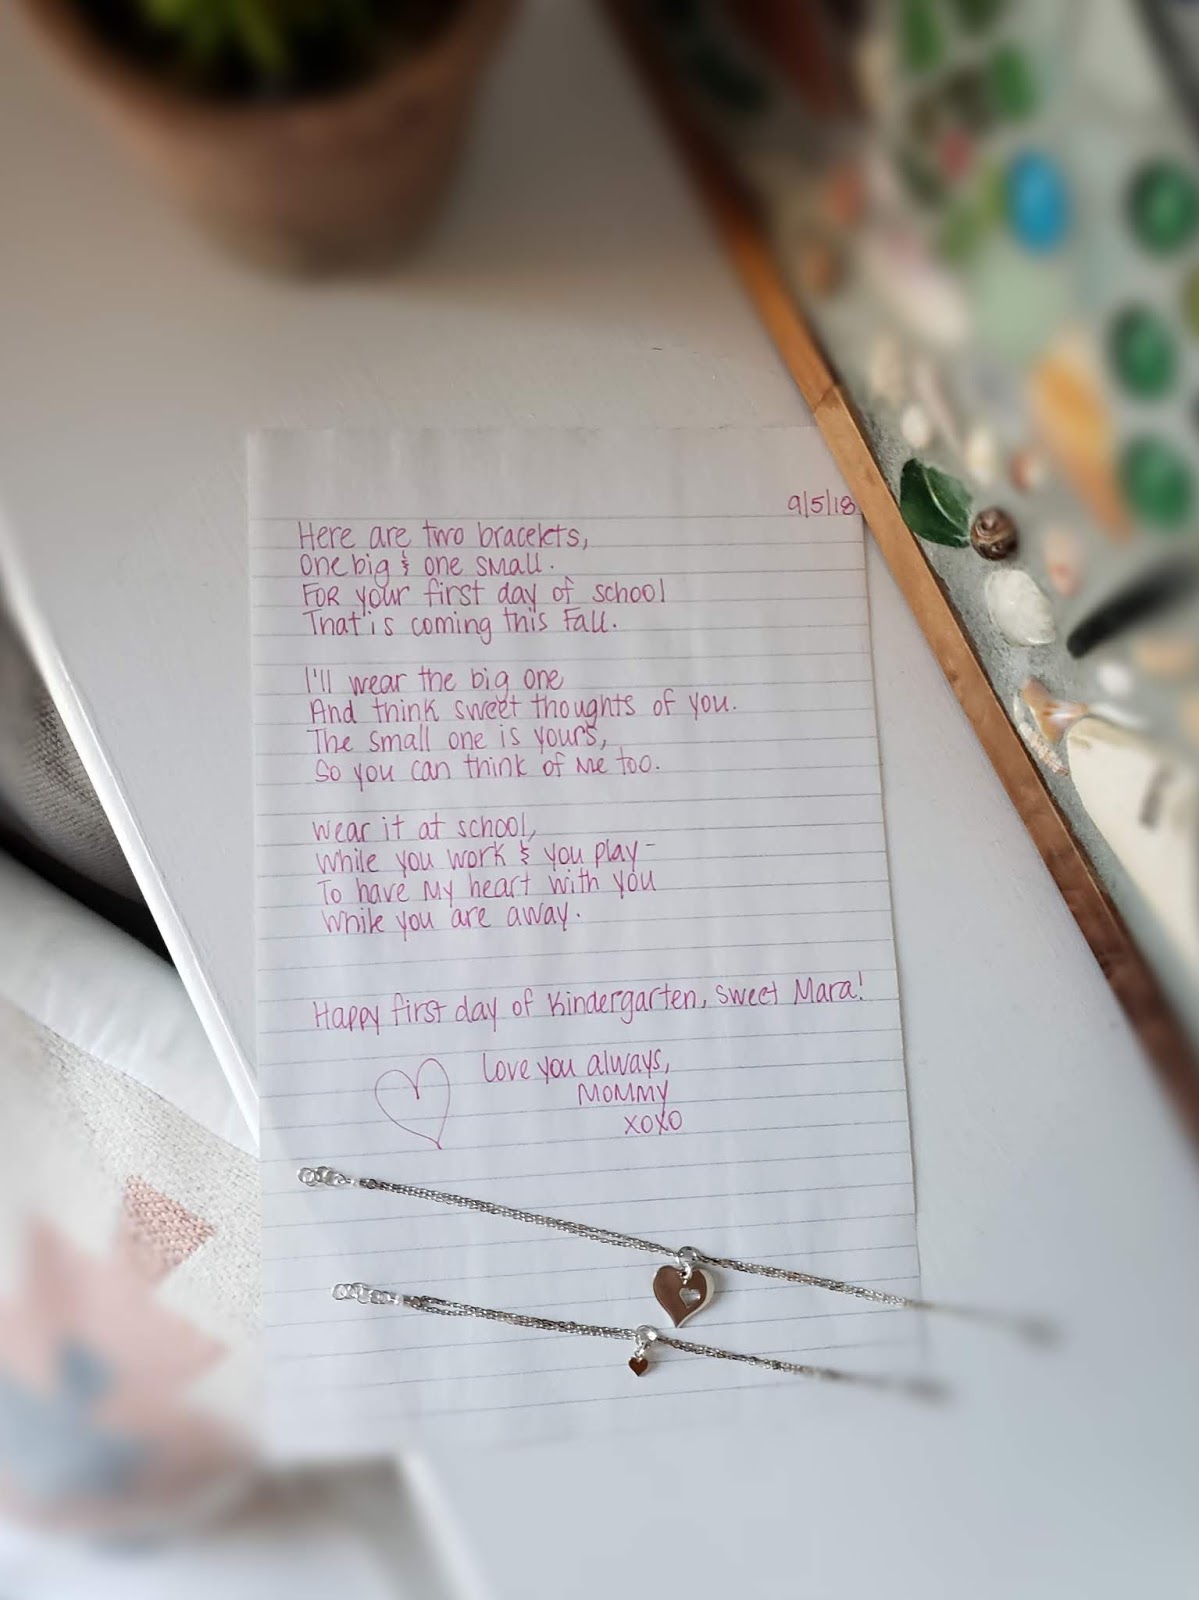 9/5/18
Here are two bracelets,
One big & one small.
For your first day of school
That is coming this Fall.
I'll wear the big one
And think sweet thoughts of you.
The small one is yours,
So you can think of me too.
Wear it at school,
While you work & you play-
To have my heart with you
While you are away.
Happy first day of Kindergarten, sweet Mara!
Love you always,
MOMMY
XOXO